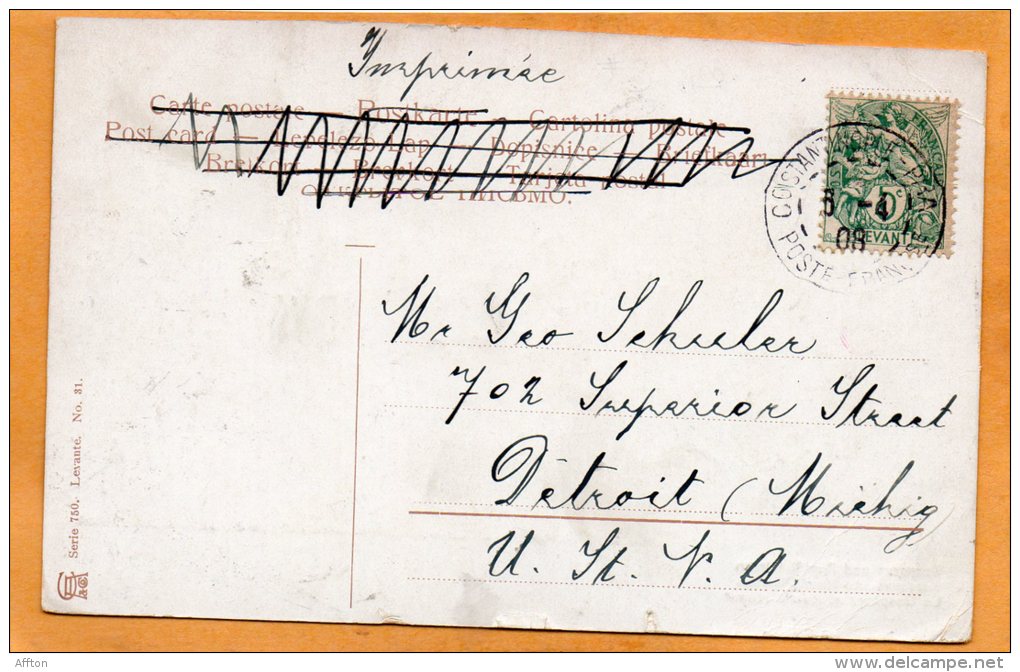 Imprimée
Carte postale Postkarte Cartolina postale
Post card — Levelező-lap — Dopisnice — Briefkaart
Brefkort Brevkort Tarjeta postal
ОТКРЫТОЕ ПИСЬМО.
CONSTANTINOPLE - PERA
5 -4
08
POSTE FRANÇAISE
5
LEVANT
Mr Geo Schuler
702 Superior Street
Détroit (Michig
U. St. N. A.
Serie 750. Levante. No. 31.
Affton
delcampe.net